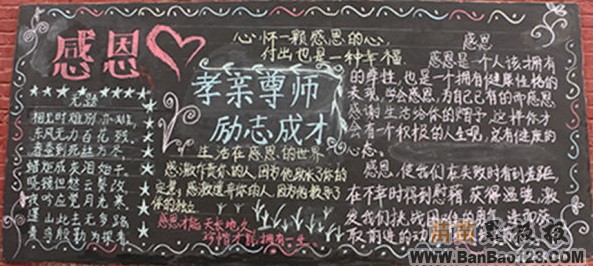 感恩
心怀一颗感恩的心,
付出也是一种幸福
无题
相见时难别亦难,
东风无力百花残。
春蚕到死丝方尽,
蜡炬成灰泪始干。
晓镜但愁云鬓改,
夜吟应觉月光寒。
蓬山此去无多路,
青鸟殷勤为探看。
孝亲尊师
励志成才
生活在感恩的世界
感激伤害你的人,因为他磨炼了你的
感激
你的人,因为他教
你的独立
感恩才能天长地久
珍惜才能拥有一生
感恩
感恩是一个人该拥有
的本性,也是一个拥有健康性格的
表现,学会感恩,为自己已有的而感恩
感谢生活给你的赠予,这样你才
会有一个积极的人生观,才有健康的
心态。
感恩,使我们在失败时看到差距,
在不幸时得到慰藉,获得温暖,激
发我们挑战困难的勇气,进而获
取前进的动
www.BanBao123.com
www.BanBao123.com